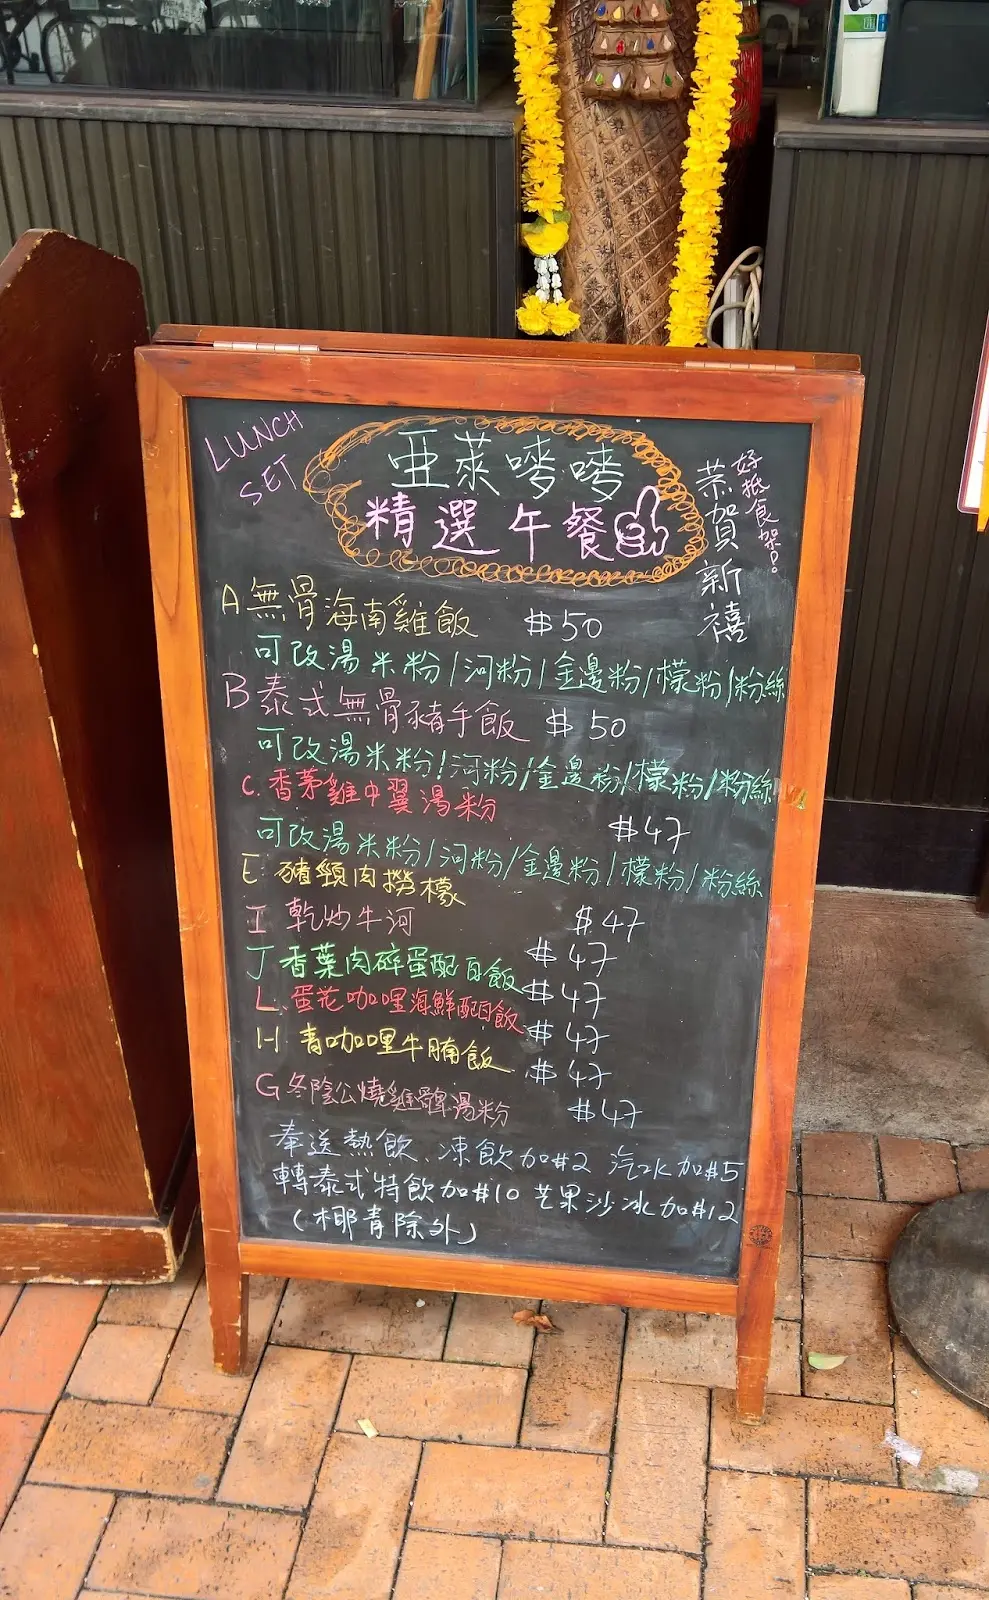 LUNCH
SET
亞萊嘜嘜
精選午餐
恭賀新禧
好抵食架!
A 無骨海南雞飯 $50
可改湯米粉/河粉/金邊粉/檬粉/粉絲
B 泰式無骨豬手飯 $50
可改湯米粉/河粉/金邊粉/檬粉/粉絲
C. 香茅雞中翼湯粉 $47
可改湯米粉/河粉/金邊粉/檬粉/粉絲
E: 豬頸肉撈檬 $47
I 乾炒牛河 $47
J 香葉肉碎蛋配白飯 $47
L. 蛋花咖喱海鮮配白飯 $47
H 青咖喱牛腩飯 $47
G 冬陰公燒雞髀湯粉 $47
奉送熱飲、凍飲加$2 汽水加$5
轉泰式特飲加$10 芒果沙冰加$12
(椰青除外)